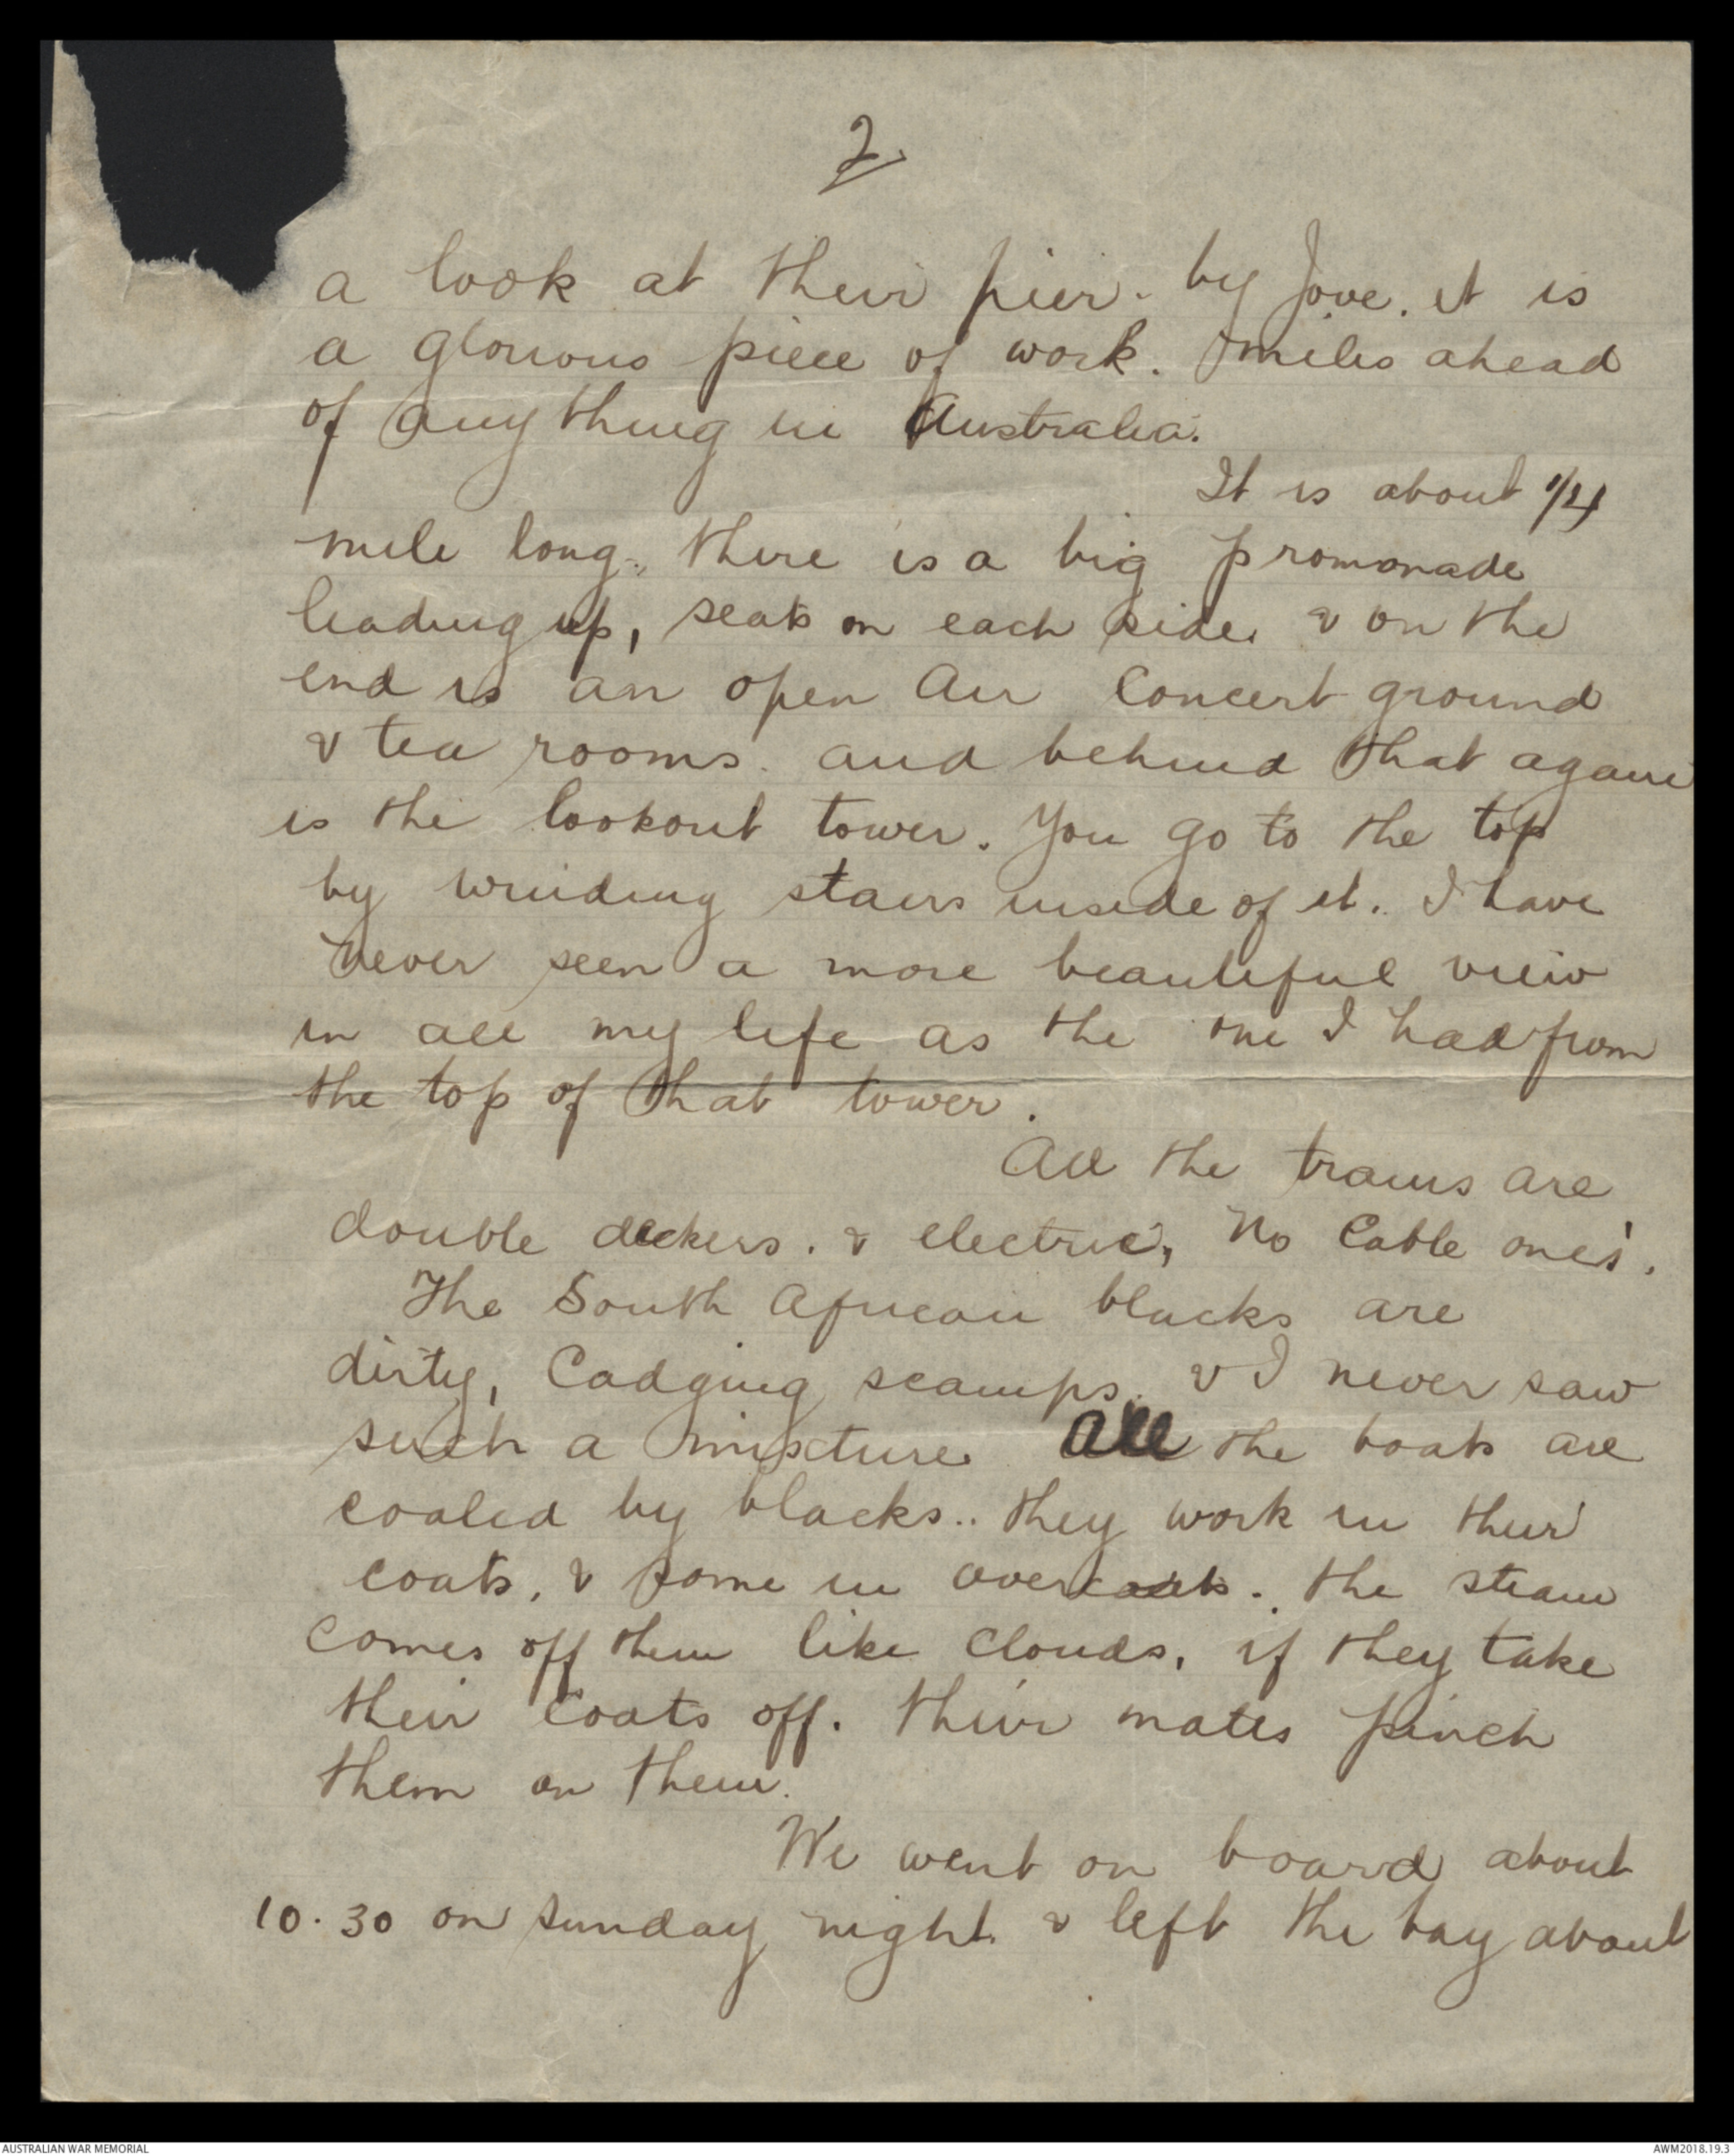 2.
a look at their pier. by Jove. it is
a glorious piece of work. miles ahead
of anything in Australia.
It is about 1/4
mile long. there is a big promonade
leading up, seats on each side. & on the
end is an open Air Concert ground
& tea rooms. and behind that again
is the lookout tower. You go to the top
by winding stairs inside of it. I have
never seen a more beautiful view
in all my life as the one I had from
the top of that tower.
All the trams are
double deckers. & electric, No Cable ones.
The South African blacks are
dirty, Cadging scamps. & I never saw
such a mixture. All the boats are
coaled by blacks.. they work in their
coats, & some in overcoats. the steam
comes off them like clouds, if they take
their coats off. their mates pinch
them on them.
We went on board about
10.30 on Sunday night. & left the bay about
AUSTRALIAN WAR MEMORIAL
AWM2018.19.3